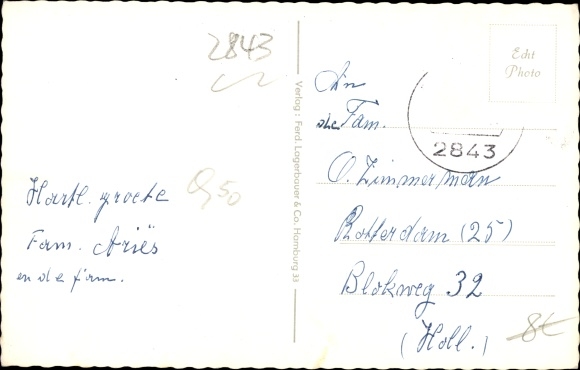 2843
Hartl. groete
Fam. Ariës
en de fam.
0,50
Verlag: Ferd. Lagerbauer & Co. Hamburg 33
Echt
Photo
2843
An
de Fam.
O. Zimmerman
Rotterdam (25)
Blokweg 32
(Holl.)
8€